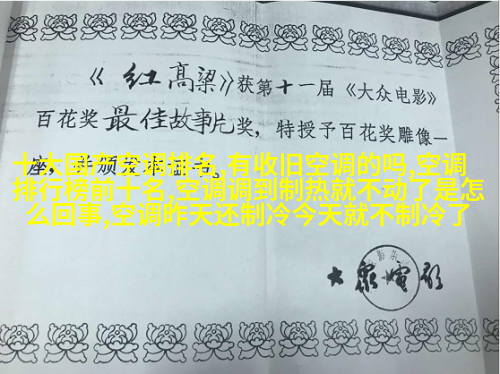 《红高粱》获第十一届《大众电影》
百花奖最佳故事片奖，特授予百花奖雕像一
座，并颁发证书。
十大国产空调排名,有收旧空调的吗,空调
排行榜前十名,空调调到制热就不动了是怎
么回事,空调昨天还制冷今天就不制冷了
大眾電影